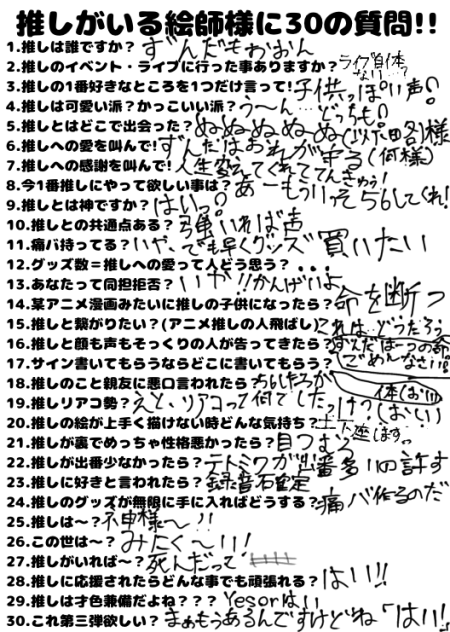 推しがいる絵師様に30の質問!!
1.推しは誰ですか？ ずんだもぉぉん
2.推しのイベント・ライブに行った事ありますか？ ライブ自体ない…っ
3.推しの1番好きなところを1つだけ言って! 子供っぽい声!
4.推しは可愛い派？かっこいい派？ う〜ん…どっちも!
5.推しとはどこで出会った？ ぬぬぬぬぬぬ(以下略)様
6.推しへの愛を叫んで! ずんだはおれが守る(何様)
7.推しへの感謝を叫んで! 人生変えてくれててんきゅう!
8.今1番推しにやって欲しい事は？ あーもういっそ56してくれ!
9.推しとは神ですか？ はいっ。
10.推しとの共通点ある？ 強いれば声
11.痛バ持ってる？ いや、でも早くグッズ買いたい
12.グッズ数＝推しへの愛って人どう思う？ ・・・
13.あなたって同担拒否？ いや!!かんげいよ
14.某アニメ漫画みたいに推しの子供になったら？ 命を断つ
15.推しと繋がりたい？(アニメ推しの人飛ばし) これは…どうだろう
16.推しと顔も声もそっくりの人が告ってきたら？ ずんだは一つの命 ごめんなさい!
17.サイン書いてもらうならどこに書いてもらう？ 体(おい)
18.推しのこと親友に悪口言われたら？ 56したろか
19.推しリアコ勢？ えと、リアコって何でしたっけ？(おい)
20.推しの絵が上手く描けない時どんな気持ち？ 土下座しますっ
21.推しが裏でめっちゃ性格悪かったら？ 目つむる
22.推しが出番少なかったら？ テトミクが出番多いの許す
23.推しに好きと言われたら？ 録音確定
24.推しのグッズが無限に手に入ればどうする？ 痛バ作るのだ
25.推しは〜？ 神様〜!!
26.この世は〜？ みにく〜い!
27.推しがいれば〜？ 死んだって
28.推しに応援されたらどんな事でも頑張れる？ はい!!
29.推しは才色兼備だよね？？？ Yesorはい
30.これ第三弾欲しい？ まぁもうあるんですけどね「はい!」